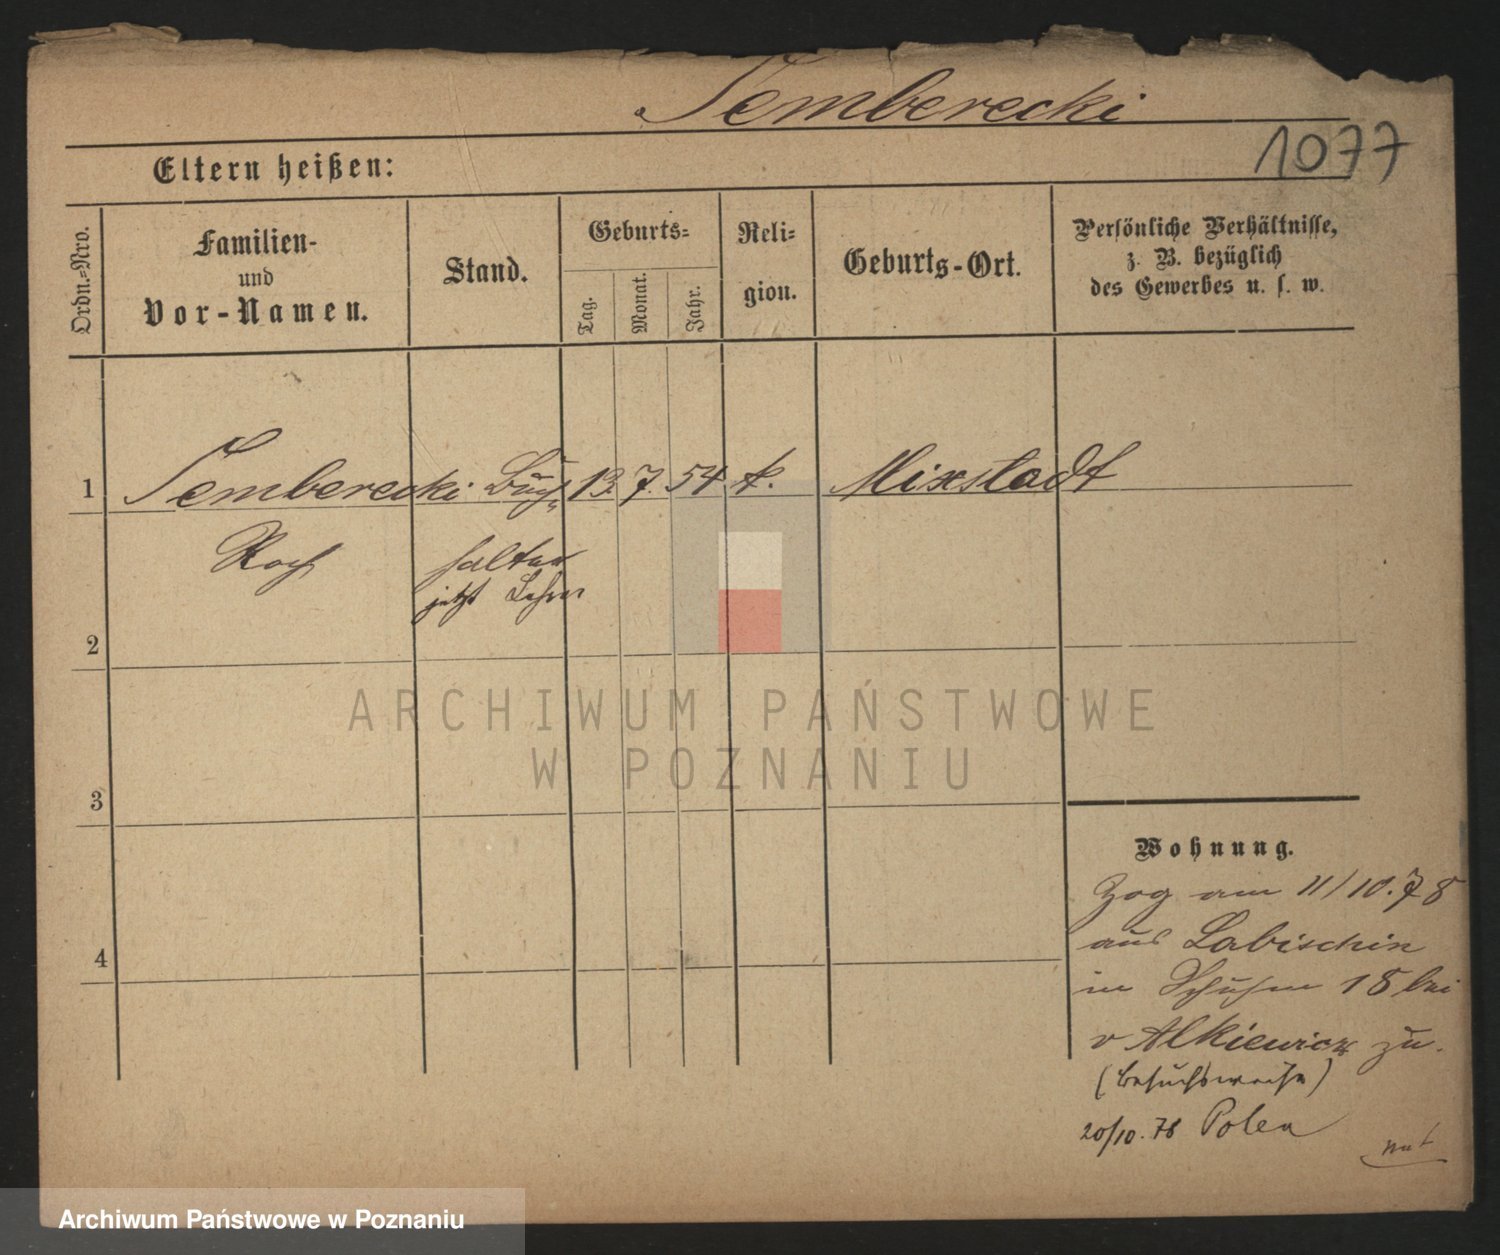 Temberecki
1077
Eltern heißen:
Ordn.=Nro.
Familien-
und
Vor-Namen.
Stand.
Geburts=
Tag.
Monat.
Jahr.
Reli=
gion.
Geburts-Ort.
Persönliche Verhältnisse,
z. B. bezüglich
des Gewerbes u. s. w.
1 Temberecki Buch= 13. 7. 54 k. Mixstadt
Roch halter
jetzt Lehrer
2
3
4
Wohnung.
Zog am 11/10.78
aus Labischin
in Schuhm 18 bei
v Alkiewicz zu.
(besuchsweise)
20/10.78 Polen
ARCHIWUM PAŃSTWOWE
W POZNANIU
Archiwum Państwowe w Poznaniu